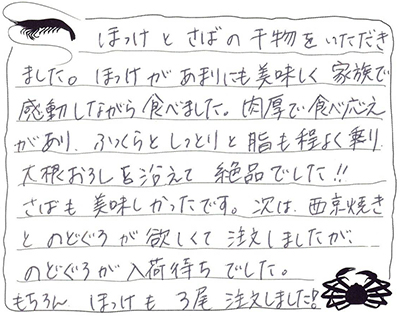 ほっけとさばの干物をいただき
ました。ほっけがあまりにも美味しく家族で
感動しながら食べました。肉厚で食べ応え
があり、ふっくらとしっとりと脂も程よく乗り、
大根おろしを添えて絶品でした!!
さばも美味しかったです。次は、西京焼き
とのどぐろが欲しくて注文しましたが、
のどぐろが入荷待ちでした。
もちろん ほっけも3尾注文しました!!